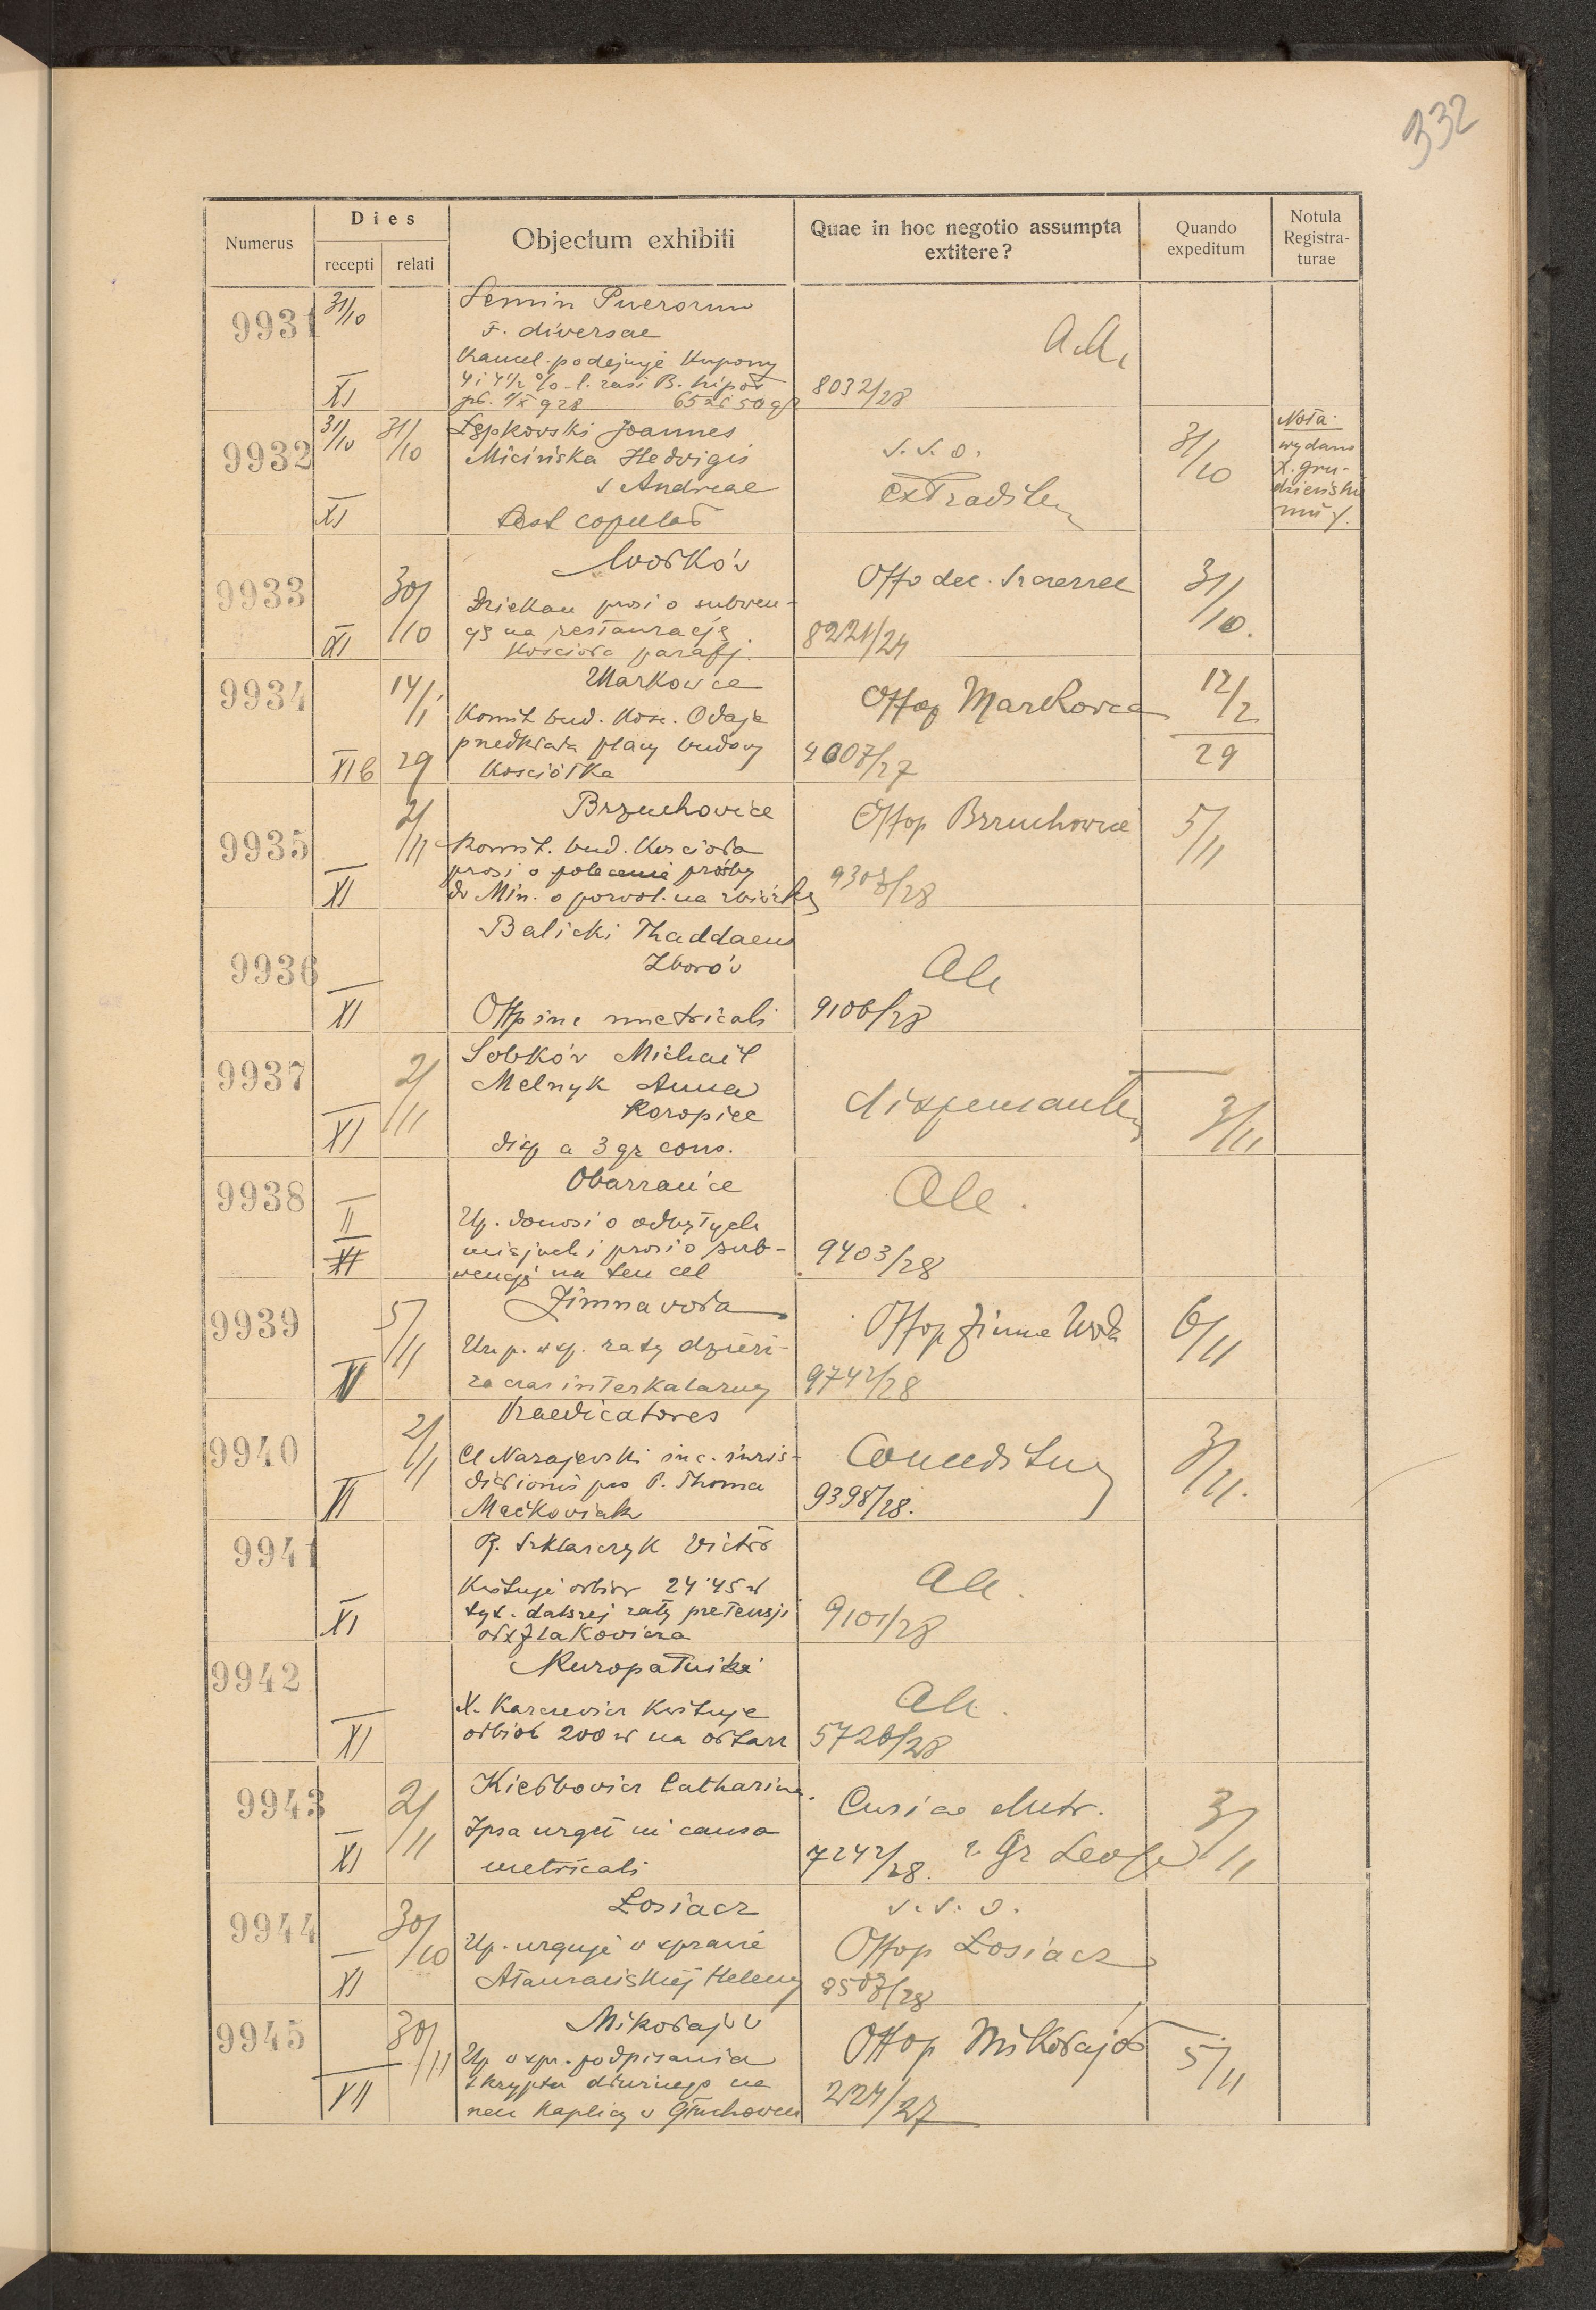 332
Numerus
Dies
recepti relati
Objectum exhibiti
Quae in hoc negotio assumpta
extitere?
Quando
expeditum
Notula
Registra-
turae
9931 31/10 Semin Puerorum
F. diversae
Kancel. podejmuje Kupony
4 i 4½ %
XI
a.A.
8032/28
9932 31/10 31/10 Łępkovski Joannes
Micińska Hedvigis
s Andreae
XI
test copulat
s.s.o.
extraditur
31/10
Nota
wydano
X. gru-
9933 30/10
Dziekan prosi o subwen-
cję na restaurację
XI Kościoła parafj.
Offo dec.
8221/24
31/10.
9934 14/1 Markowce
Komit. bud. Kośc. Odaje
przedkłada plany budowy
XIb 29 Kosciółka
Offop Markowce
4607/27
12/2
29
9935 2/11 Brzuchovice
Komit. bud. Kościoła
prosi o polecenie prośby
XI do Min. o pozwol. na zbiórkę
Offop Brzuchowice
9308/28
5/11
9936 Balicki Thaddaeus
Zborów
XI Offp sine metricali
Ale
9106/28
9937 2/11 Sobków Michaël
Melnyk Anna
Koropiec
XI disp a 3 gr cons.
dispensantur
3/11
9938 Obarzańce
II Up. donosi o odbytych
XI misjach i prosi o sub-
wencję na ten cel
Ale.
9403/28
9939 5/11 Zimnavoda
Urz. p. wsp. raty dzierż-
XI za czas interkalarny
Offop Zimna Woda
9742/28
6/11
9940 2/11 Praedicatores
Cl Narajevski in c. juris-
dictionis pro P. Thoma
XI Maćkoviak
Conceditur
9398/28.
3/11.
9941 R. Szklarczyk Victor
Kwituje odbior 24'45 zł
tyt. dalszej raty pretensji
XI
Ale.
9101/28
9942 Kuropatniki
X. Karczewicz Kwituje
XI odbiór 200 zł na ołtarz
Ale.
5728/28
9943 2/11 Kiełbovicz Catharina.
Ipsa urget in causa
XI metricali
Curiae Metr.
7242/28. r. Gr Leop.
3/11
9944 30/10 Losiacz
Up. urguje w sprawie
XI Heleny
s.s.o.
Offop Losiacz
8507/28
9945 30/11 Mikołajów
Up w spr. podpisania
skryptu dłużnego na
XII rem Kaplicy w Głuchowcu
Offop Mikołajów
224/27
5/11